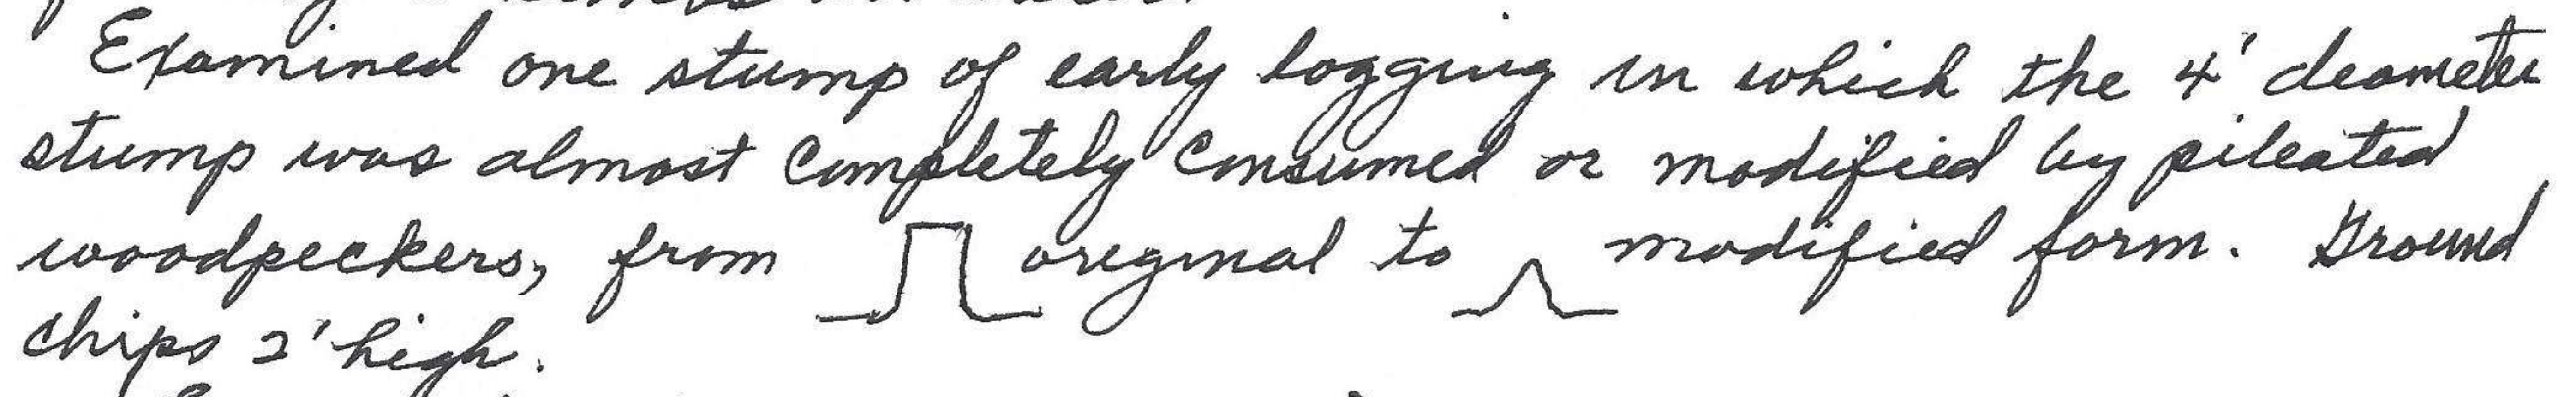 Examined one stump of early logging in which the 4' diameter
stump was almost completely consumed or modified by pileated
woodpeckers, from original to modified form. Ground
chips 2' high.